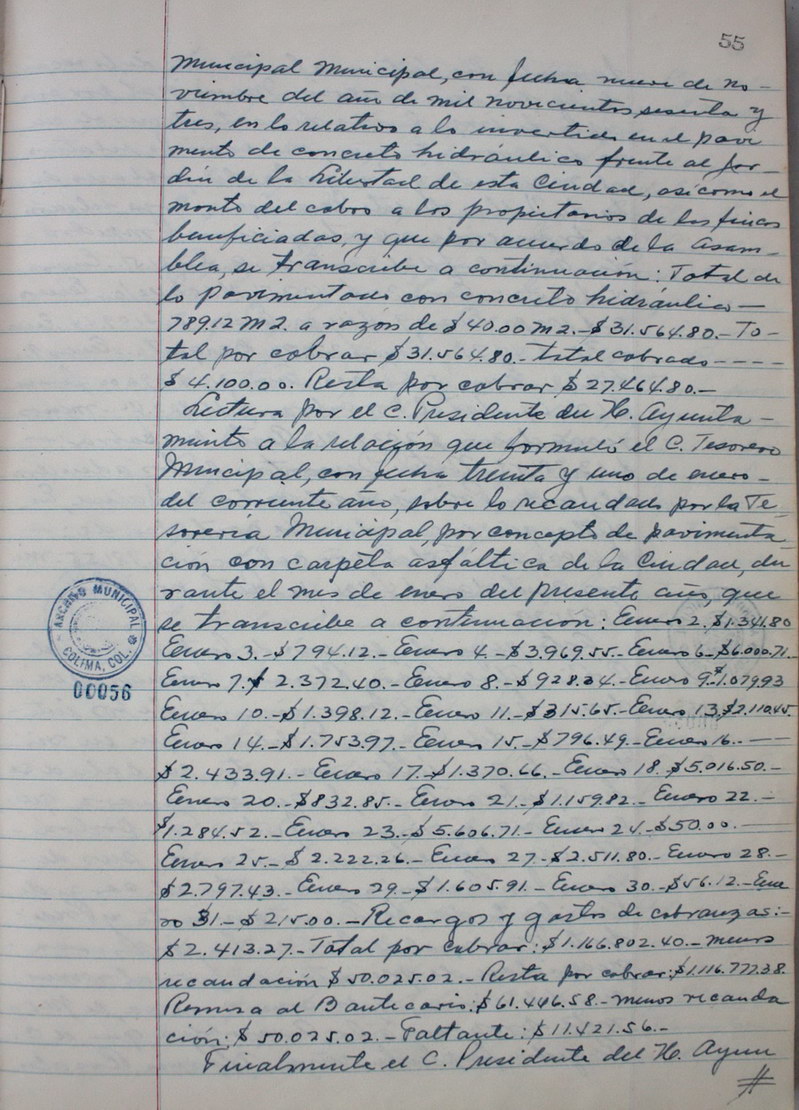 55
Municipal Municipal, con fecha nueve de no-
viembre del año de mil novecientos sesenta y
tres, en lo relativo a lo invertido en el pavi
mento de concreto hidráulico frente al Jar-
din de la Libertad de esta Ciudad, asi como el
monto del cobro a los propietarios de las fincas
beneficiadas, y que por acuerdo de la Asam-
blea, se transcribe a continuación: Total de
lo pavimentado con concreto hidráulico-
789.12 M2. a razón de $40.00 M2.-$31.564.80.- To-
tal por cobrar $31.564.80.- total cobrado----
$4.100.00. Resta por cobrar $27.464.80.-
Lectura por el C. Presidente del H. Ayunta-
miento a la relación que formuló el C. Tesorero
Municipal, con fecha treinta y uno de enero-
del corriente año, sobre lo recaudado por la Te-
soreria Municipal, por concepto de pavimenta
ción con carpeta asfáltica de la Ciudad, du
rante el mes de enero del presente año, que
se transcribe a continuación: Enero 2.$1.341.80
Enero 3.-$794.12.-Enero 4.-$3.969.55.-Enero 6-$6.000.71.-
Enero 7.$ 2.372.40.-Enero 8.-$928.34.-Enero 9-$1.079.93
Enero 10.-$1.398.12.-Enero 11.-$315.65.-Enero 13,$2.110.45.
Enero 14.-$1.753.97.-Enero 15.-$796.49.-Enero 16.-
$2.433.91.-Enero 17.-$1.370.66.-Enero 18.-$5.016.50.-
Enero 20.-$832.85.-Enero 21.-$1.159.82.-Enero 22.-
$1.284.52.-Enero 23.-$5.606.71.-Enero 24.-$50.00.-
Enero 25.-$2.222.26.-Enero 27-$2.511.80.-Enero 28.-
$2.797.43.-Enero 29.-$1.605.91.-Enero 30.-$56.12.-Ene
ro 31.-$215.00.-Recargos y gastos de cobranzas:-
$2.413.27.-Total por cobrar:$1.166.802.40.-menos
recaudación $50.025.02.-Resta por cobrar:$1.116.777.38
Remesa al Bantecario:$61.446.58.-menos recauda
ción:$50.025.02.-Faltante:$11.421.56.-
Finalmente el C. Presidente del H. Ayun
#
ARCHIVO MUNICIPAL
COLIMA, COL.
00056